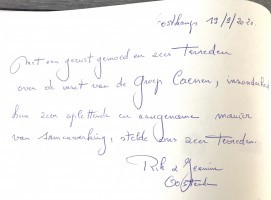 Oostkamp 19/9/2020.
Met een gerust gemoed en zeer Tevreden
over de inzet van de Groep Caenen,
hun zeer oplettende en aangename manier
van samenwerking, stelde ons zeer Tevreden.
Rik & Jeannine